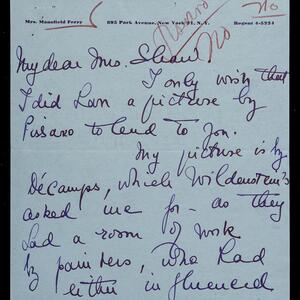 No
Pissarro
No
Mrs. Mansfield Ferry 895 Park Avenue, New York 21, N.Y. Regent 4-5224
My dear Mrs. Shaw
I only wish that
I did Lan a picture by
Pissaro to lend to you.
My picture is by
Décamps, which Wildenstein's
asked me for - as they
had a room of work
by painters, who had
either influenced